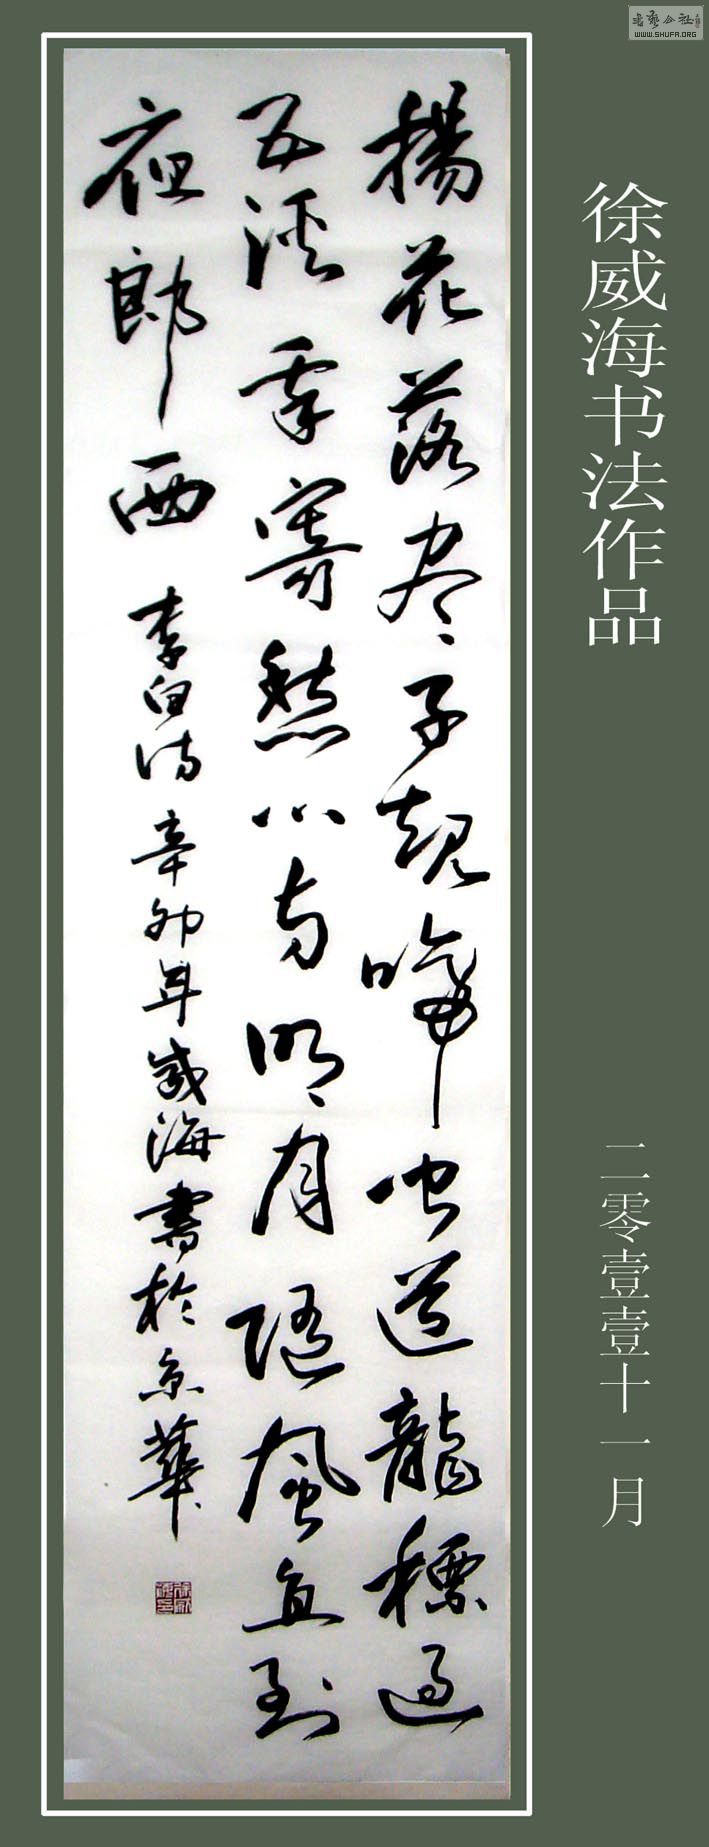 書藝公社
WWW.SHUFA.ORG
徐威海书法作品
二零壹壹十一月
楊花落尽子規啼聞道龍標過
五溪我寄愁心与明月随風直到
夜郎西
李白诗辛卯年威海書於京華